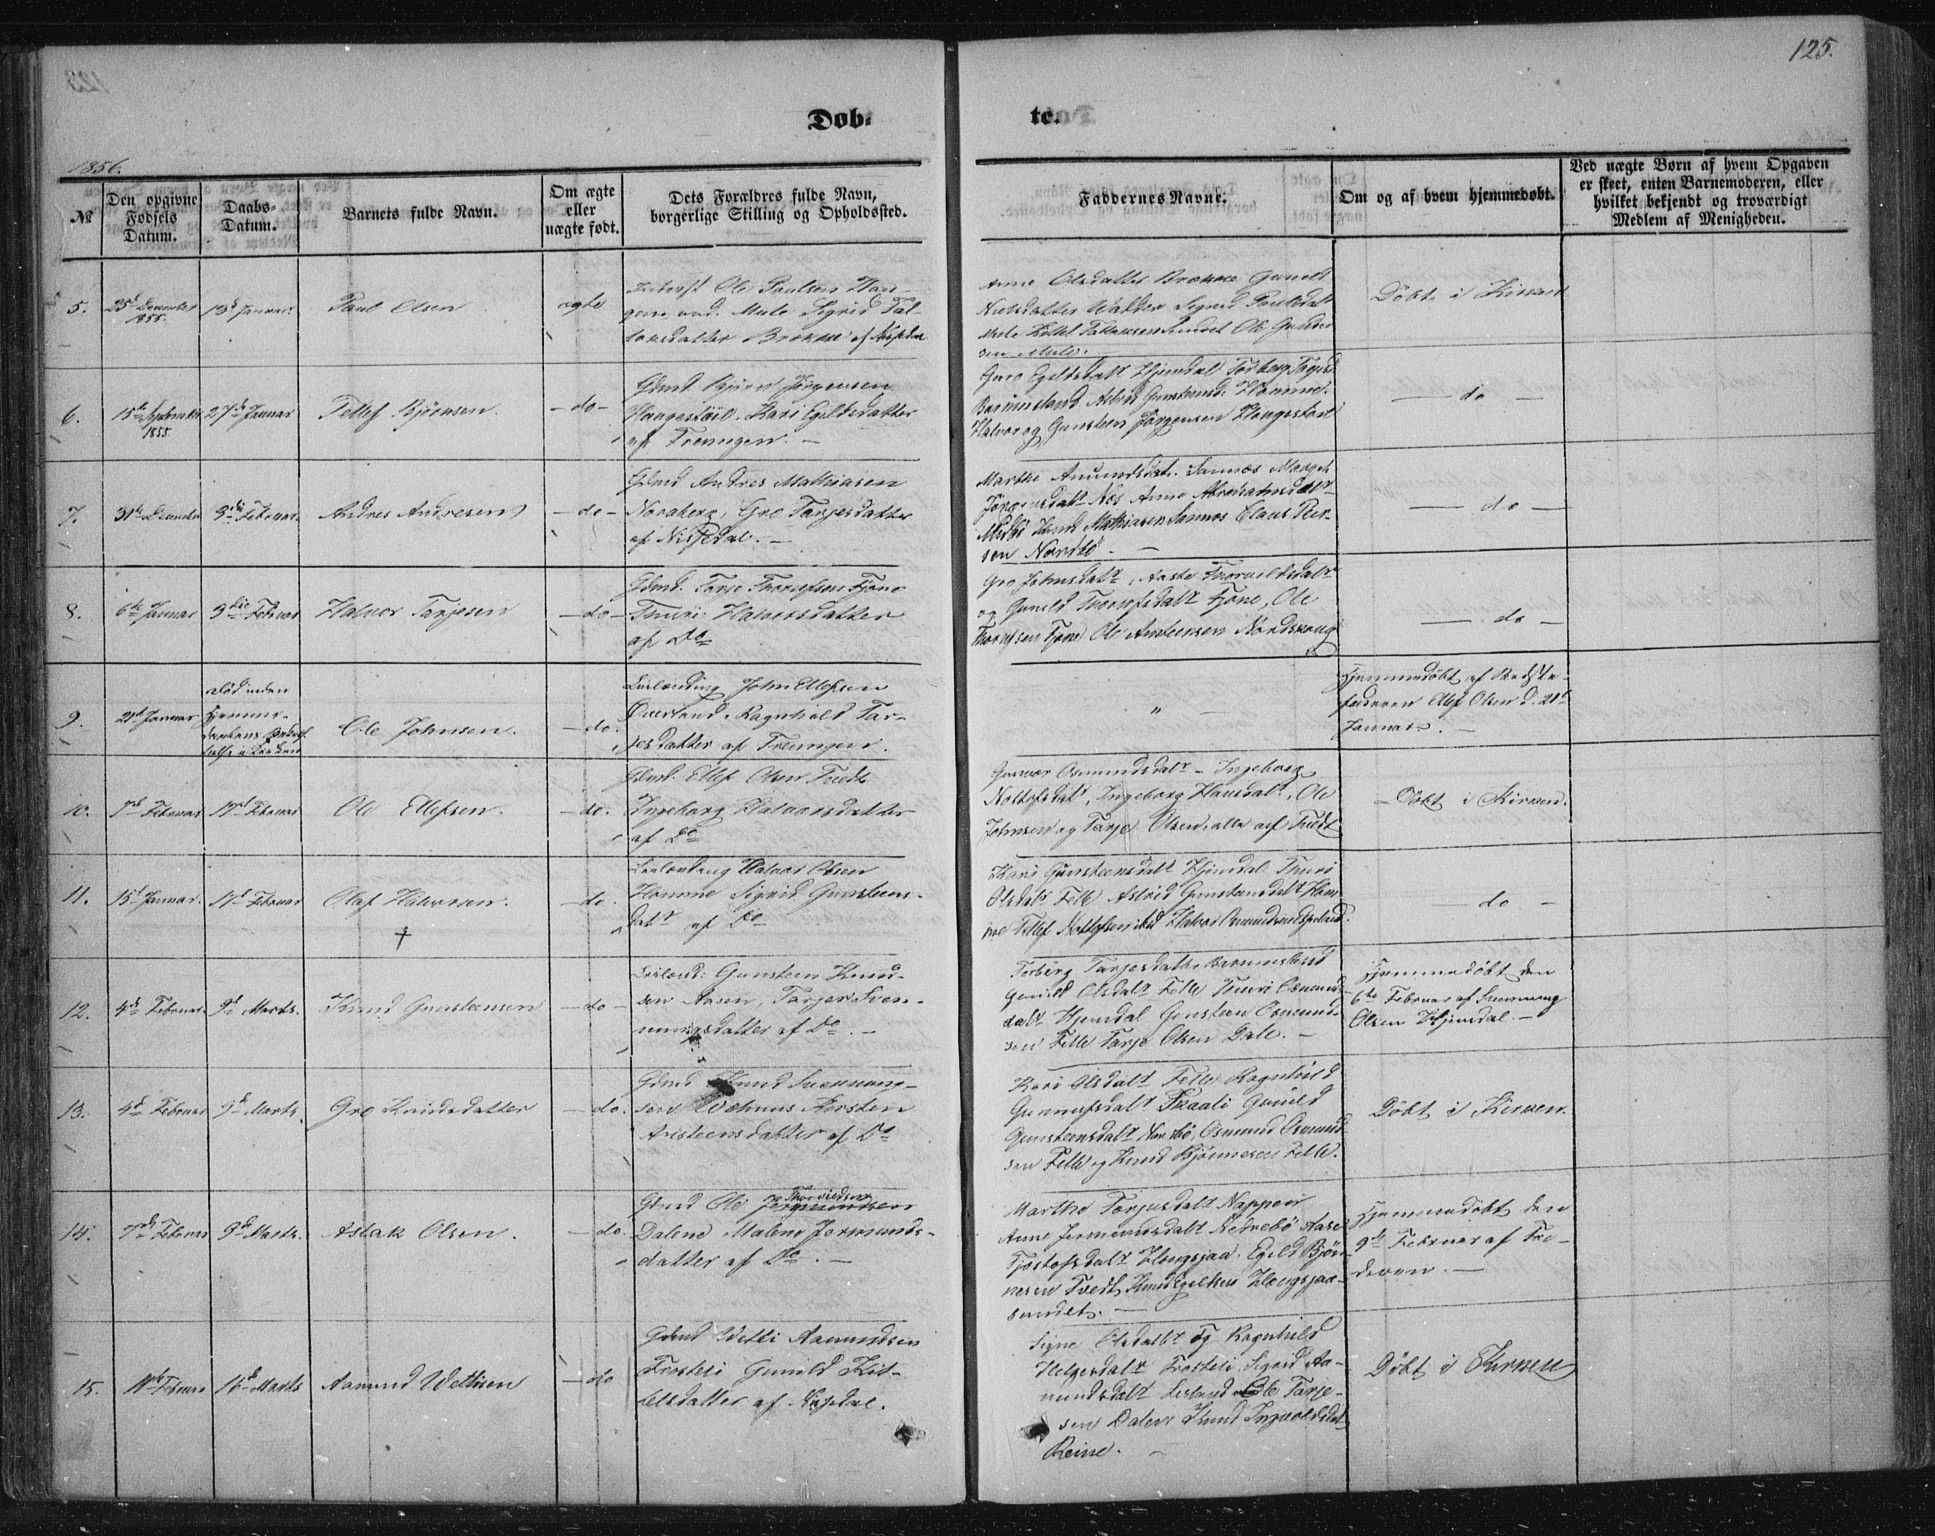 125.
Døb-
te.
1856.
№
Den opgivne
Fødsels
Datum.
Daabs-
Datum.
Barnets fulde Navn.
Om ægte
eller
uægte født.
Dets Forældres fulde Navn,
borgerlige Stilling og Opholdssted.
Faddernes Navne.
Om og af hvem hjemmedøbt.
Ved uægte Børn af hvem Opgaven
er skeet, enten Barnemoderen, eller
hvilket bekjendt og troværdigt
Medlem af Menigheden.
5.
25d December
1855.
13d Januar.
Paul Olsen
ægte
Ole Paulsen
Mule Sigrid Tal-
laksdatter Brokke af Nissedal
Anne Olsdatter Brokke Gunild
Nielsdatter Sigrid Poulsdatr
Mule Kittel Ole Gunder
sen Mule.
Døbt i Kirken
6.
15de September
1855
27de Januar
Tellef Bjørnsen.
-do-
Gdmd Bjørn Jørgensen
Haugestøil, Kari Egilsdatter
af Treungen. -
Guro Egilsdatr Hjemdal Torberg Tarjesd
Barmestand, Astrid Gunsteinsd. Homme.
Halvor og Gunsteen Jørgensen Haugestøil
- do -
7.
31te December
3die Februar.
Andres Andresen
-do-
Gdmd Andres Mathiasen
Noraberg, Gro Tarjesdatter
af Nissedal. -
Marthe Amundsdat. Sannæs Marget
Jørgensdatr Næs Anne Abrahamsdatr
Midbø Knud Mathiasen Sannæs Claus Per-
sen Nordbø. -
- do -
8.
6te Januar
3die Februar
Halvor Tarjesen
-do-
Gdmd. Tarje Thorufsen Fjone
Thuri Halvorsdatter
af Do
Gro Johnsdatr, Aaste Thorvildsdatr
og Gunild Thorufsdatr Fjone, Ole
Thorufsen Fjone Ole Arnteensen Nordskoug
- do -
9.
21d Januar
død inden
Hjemme-
daabens
i Kirken
Ole Johnsen.
-do.
Leilænding John Ellefsen
Øverland, Ragnhild Tar-
jesdatter af Treungen.
" -
Hjemmedøbt af Bedste-
faderen Ellef Olsen d. 21d
Januar. -
10.
7d Februar
17d Februar
Ole Ellefsen.
-do.
Gdmd. Ellef Olsen Tvedt
Ingeborg Halvorsdatter
af Do
Gunvor Osmundsdatr - Ingeborg
Nottofsdatr, Ingeborg Hansdatr, Ole
Johnsen og Tarje Olsen, alle af Tvedt
- Døbt i Kirken.
11.
15d Januar.
17d Februar
Olaf Halvorsen.
†
-do.
Leilænding Halvor Olsen
Homme Sigrid Gunsteens-
datr af Do
Kari Gunsteensdatr Hjemdal Thuri
Olsdatr Felle Astrid Gunsteensdatr Hom-
me Tellef Nottofsen ibid Halvor Osmundsen Espeland.
- do -
12.
4de Februar.
9d Marts.
Knud Gunsteensen
-do-
Leilænd: Gunsteen Knud-
sen Aasen, Tarjer Sven-
nungsdatter af Do. -
Torberg Tarjesdatr Barmestand
Gunild Olsdatr Felle Thuri Osmunds-
datr Hjemdal Gunsteen Osmund-
sen Felle Tarje Olsen Dale. -
Hjemmedøbt den
6te Februar af Svennung
Olsen Hjemdal. -
13.
4d Februar
9d Marts
Gro Knudsdatter
-do.
Gdmd Knud Svennung-
sen Wehuus Aasten
Aristeensdatter af Do
Kari Olsdatr Felle Ragnhild
Gunnufsdatr Skaali Gunild
Gunsteensdatr Norsbø, Osmund Osmund
sen Felle og Knud Bjørnnesen Felle.
Døbt i Kirken.
14.
7de Februar
9de Marts.
Aslak Olsen.
-do.
Thorvildsen
Gdmd Ole Jormundsen
Dalene Malene Jormunds-
datter af Do. -
Marthe Tarjesdatr Nappen
Anne Jormundsdatr Nedrebø Aase
Tjostofsdatr Haugsjaa. Egild Bjøn-
nesen Tvedt Knud Egilsen Haugsjaa-
sundet. -
Hjemmedøbt den
9de Februar af Fa-
deren. -
15.
11te Februar
16d Marts
Aamund Wetlisen
-do
Gdmd Wetli Aamundsen
Frosteli Gunild Kit-
tilsdatter af Nissedal.
Signe Olsdatr og Ragnhild
Helgesdatr Frosteli Sigrid Aa-
mundsdatr Ole Tarje-
sen Dalen Knud Ingvoldsdat.
Reine. -
Døbt i Kirken